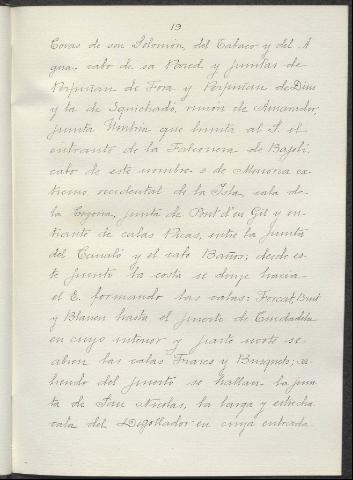 19
Covas de son Solomon, del Tabaco y del A
gua, cabo de sa Pared y juntas de
Perpuñan de Fora y Perpuñan de Dins
y la de Squichado, rincon de Amarador,
junta Umbria que limita al S. el
entrante de la Falconera de Bajoli,
cabo de este nombre o de Menorca ex-
tremo occidental de la Isla, cala de
la Cegona, junta de Pont d'en Gil y en-
trante de calas Picas, entre la junta
del Canaló y el cabo Baños; desde es-
te junto la costa se dirije hacia
el E. formando las calas: Forcat, Brut
y Blanch hasta el puerto de Ciudadela
en cuyo interior y parte norte se
abren las calas Frares y Busquets; sa-
liendo del puerto se hallan la pun
ta de San Nicolas, la larga y estrecha
cala del Degollador en cuya entrada